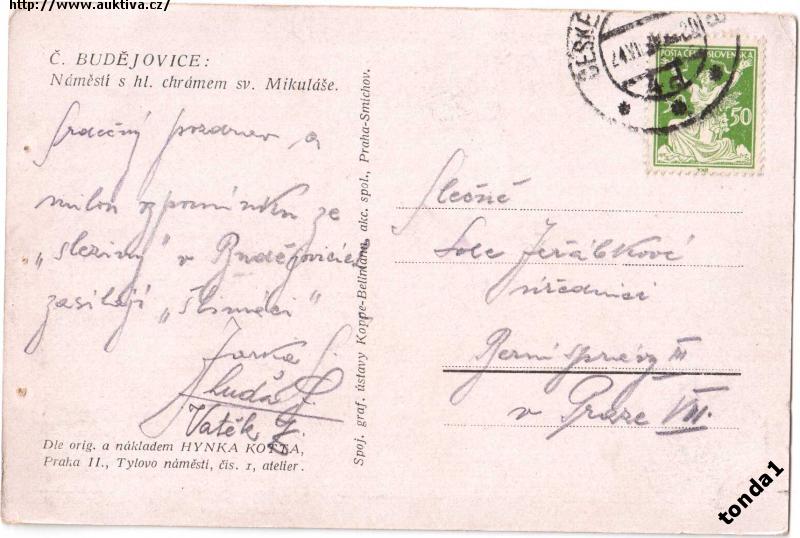 http://www.auktiva.cz/
Č. BUDĚJOVICE:
Náměstí s hl. chrámem sv. Mikuláše.
Srdečný pozdrav a
milou vzpomínku ze
„sleziny" v Budějovicích
zasílají „šlimáci"
Jarka J.
Luďa
Vatěk J.
Dle orig. a nákladem HYNKA KOTTA,
Praha II., Tylovo náměstí, čis. 1, atelier.
Spoj. graf. ústavy Koppe-Bellmann, akc. spol., Praha-Smíchov.
ČESKÉ
POŠTA ČESKOSLOVENSKÁ
50
Slečně
Jeřábkové
úřednici
Berní správy III
v Praze VII.
tonda1